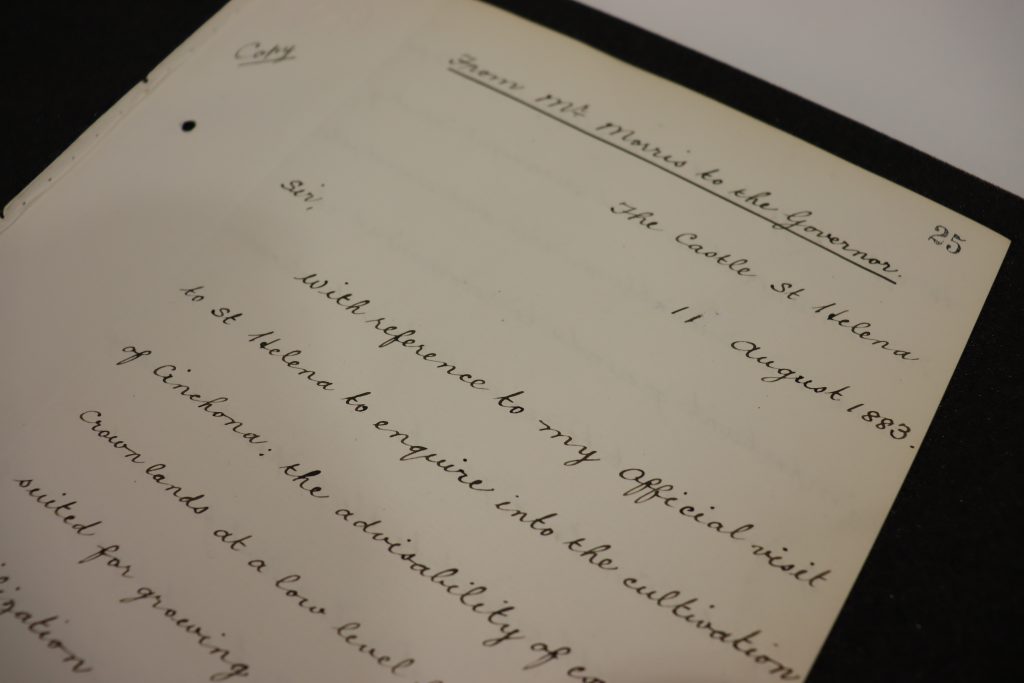 Copy
From Mr Morris to the Governor.
25
The Castle St Helena
11 August 1883.
Sir,
With reference to my official visit
to St Helena to enquire into the cultivation
of Cinchona: the advisability of
Crown lands at a low level
suited for growing